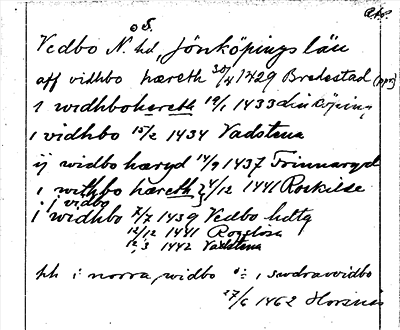 o S.
Vedbo N. hd, Jönköpings län
aff vidhbo hæreth 30/4 1429 Bredestad (ppr)
i widhbohæreth 19/1 1433 Linköping
i vidhbo 15/2 1434 Vadstena
ij widbo hæryd 14/9 1437 Trinnaryd
i withbo hæreth 24/12 1441 Roskilde
i vidbo
i widhbo 7/7 1439 Vedbo hdtg
12/12 1441
1442 Vadstena
hh i norra widbo och i sudravidbo
27/6 1462